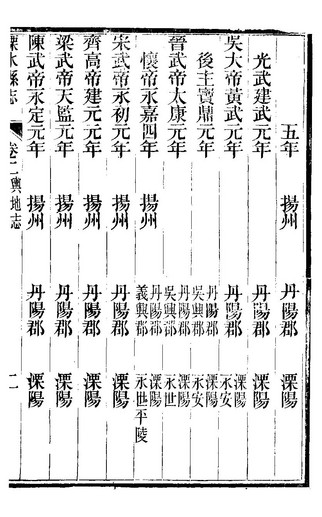 五年 揚州 丹陽郡 溧陽
光武建武元年 丹陽郡 溧陽
吳大帝黃武元年 丹陽郡 溧陽 永安
後主寶鼎元年 丹陽郡 溧陽 吳興郡 永安
晉武帝太康元年 丹陽郡 溧陽 吳興郡 永世
懷帝永嘉四年 揚州 丹陽郡 溧陽 義興郡 永世平陵
宋武帝永初元年 揚州 丹陽郡 溧陽
齊高帝建元元年 揚州 丹陽郡 溧陽
梁武帝天監元年 揚州 丹陽郡 溧陽
陳武帝永定元年 揚州 丹陽郡 溧陽
溧水縣志 卷二輿地志 二